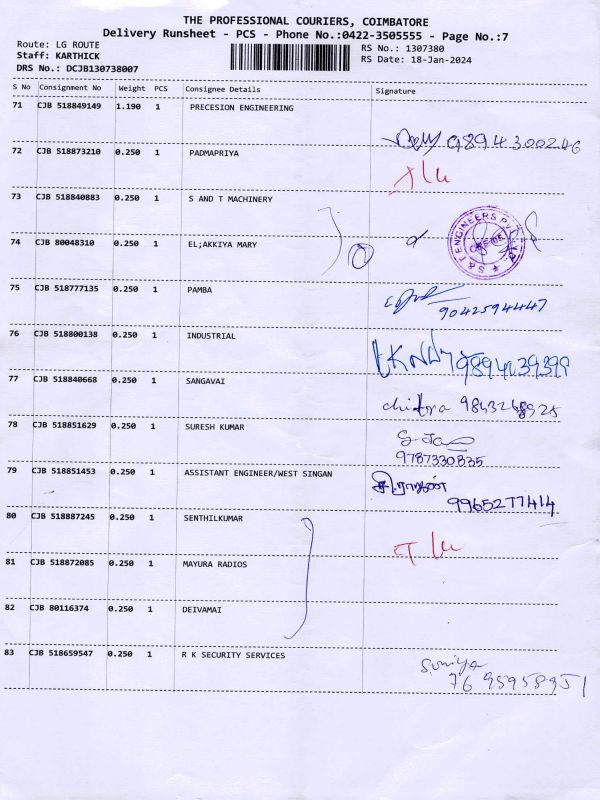 THE PROFESSIONAL COURIERS, COIMBATORE
Delivery Runsheet - PCS - Phone No.:0422-3505555 - Page No.:7
Route: LG ROUTE
RS No.: 1307380
Staff: KARTHICK
RS Date: 18-Jan-2024
DRS No.: DCJB130738007
S No Consignment No Weight PCS Consignee Details Signature
71 CJB 518849149 1.190 1 PRECESION ENGINEERING
9894300246
72 CJB 518873210 0.250 1 PADMAPRIYA
73 CJB 518840883 0.250 1 S AND T MACHINERY
S & T ENGINEERS
74 CJB 80048310 0.250 1 EL;AKKIYA MARY
75 CJB 518777135 0.250 1 PAMBA
9042594447
76 CJB 518800138 0.250 1 INDUSTRIAL
9894039399
77 CJB 518840668 0.250 1 SANGAVAI
chitra
78 CJB 518851629 0.250 1 SURESH KUMAR
9787330835
79 CJB 518851453 0.250 1 ASSISTANT ENGINEER/WEST SINGAN
9965277414
80 CJB 518887245 0.250 1 SENTHILKUMAR
81 CJB 518872085 0.250 1 MAYURA RADIOS
82 CJB 80116374 0.250 1 DEIVAMAI
83 CJB 518659547 0.250 1 R K SECURITY SERVICES
Soniya
7695958951